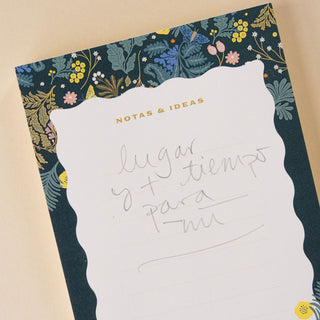 NOTAS & IDEAS
lugar
y + tiempo
para
mi